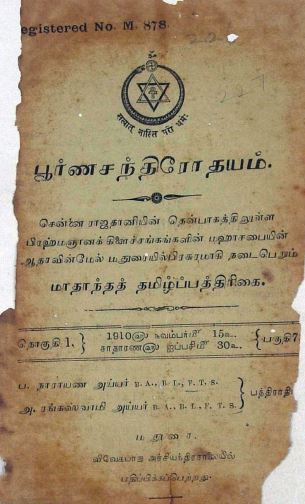 egistered No. M. 878.
सत्यात् नास्ति परो धर्मः
பூர்ணசந்திரோதயம்.
சென்னை ராஜதானியின் தென்பாகத்திலுள்ள
பிரஹ்மஞானக் கிளைச்சங்கங்களின் மஹாசபையின்
ஆதரவின்மேல் மதுரையில் பிரசுரமாகி நடைபெறும்
மாதாந்தத் தமிழ்ப்பத்திரிகை.
தொகுதி 1, 1910௵ நவம்பர்௴ 15௳ பகுதி 7
சாதாரண௵ ஐப்பசி௴ 30௳
ப. நாராயண அய்யர் B. A., B. L., F. T. S.
பத்திராதி
அ. ரங்கஸ்வாமி அய்யர் B. A., B. L., F. T. S.
மதுரை,
விவேகபாநு அச்சியந்திரசாலையில்
பதிப்பிக்கப்பெற்றது.